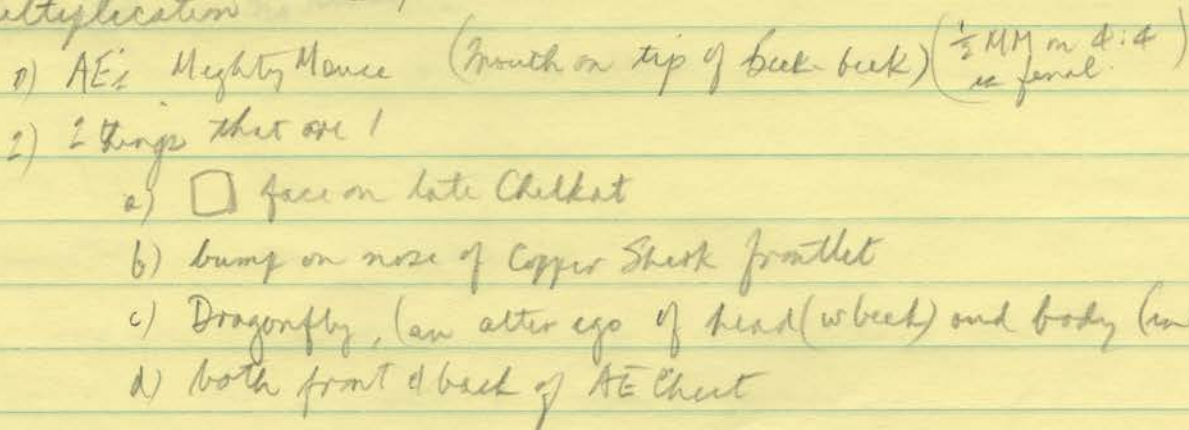 multiplication
1) AE's Mighty Mouse (Mouth on tip of beek-beek) (½ MM on 4:4 is final)
2) 2 things that are 1
a) face on late Chilkat
b) bump on nose of Copper Shark frontlet
c) Dragonfly, (an alter ego of head (w beek) and body (in
d) both front & back of AE Chest